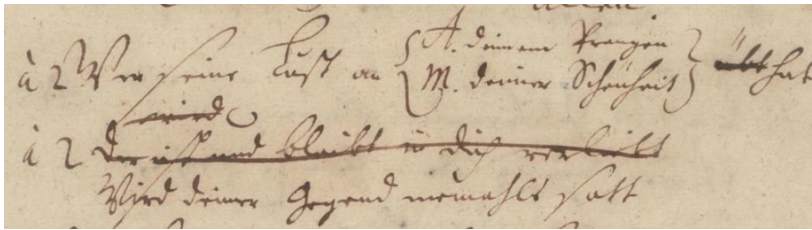 à 2 Wer seine Lust an { A. deinem Prangen
M. deiner Schönheit } übt hat
wird
à 2 der ist und bleibt in dich verliebt
Wird deiner Gegend niemahls satt